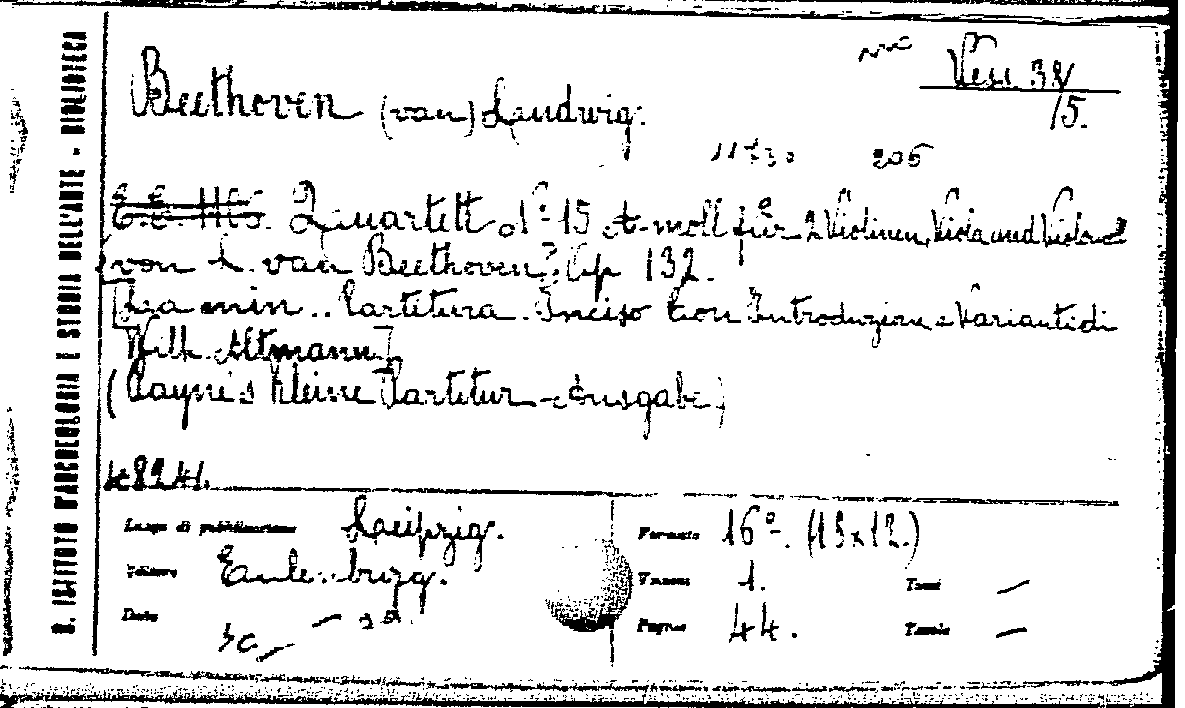 R. ISTITUTO D'ARCHEOLOGIA E STORIA DELL'ARTE - BIBLIOTECA
Vess. 38/
/5.
Beethoven (van) Ludwig.
11730 205
Quartett N° 15 A-moll für 2 Violinen, Viola und Violoncell
von L. van Beethoven. Op 132.
[La min.. Partitura. Inciso con Introduzione e Varianti di
Wilh. Altmann].
(Payne's kleine Partitur-Ausgabe)
48241.
Luogo di pubblicazione Leipzig.
Editore Eulenburg.
Data
Formato 16°. (13x12.)
Volumi 1. Tomi —
Pagine 44. Tavole —